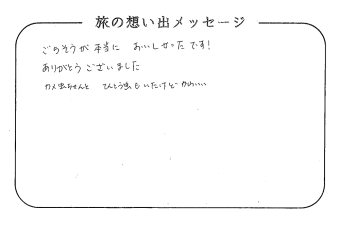 旅の想い出メッセージ
ごちそうが本当に おいしかったです!
ありがとうございました
カメ虫ちゃんと てんとう虫もいたけど かわいい